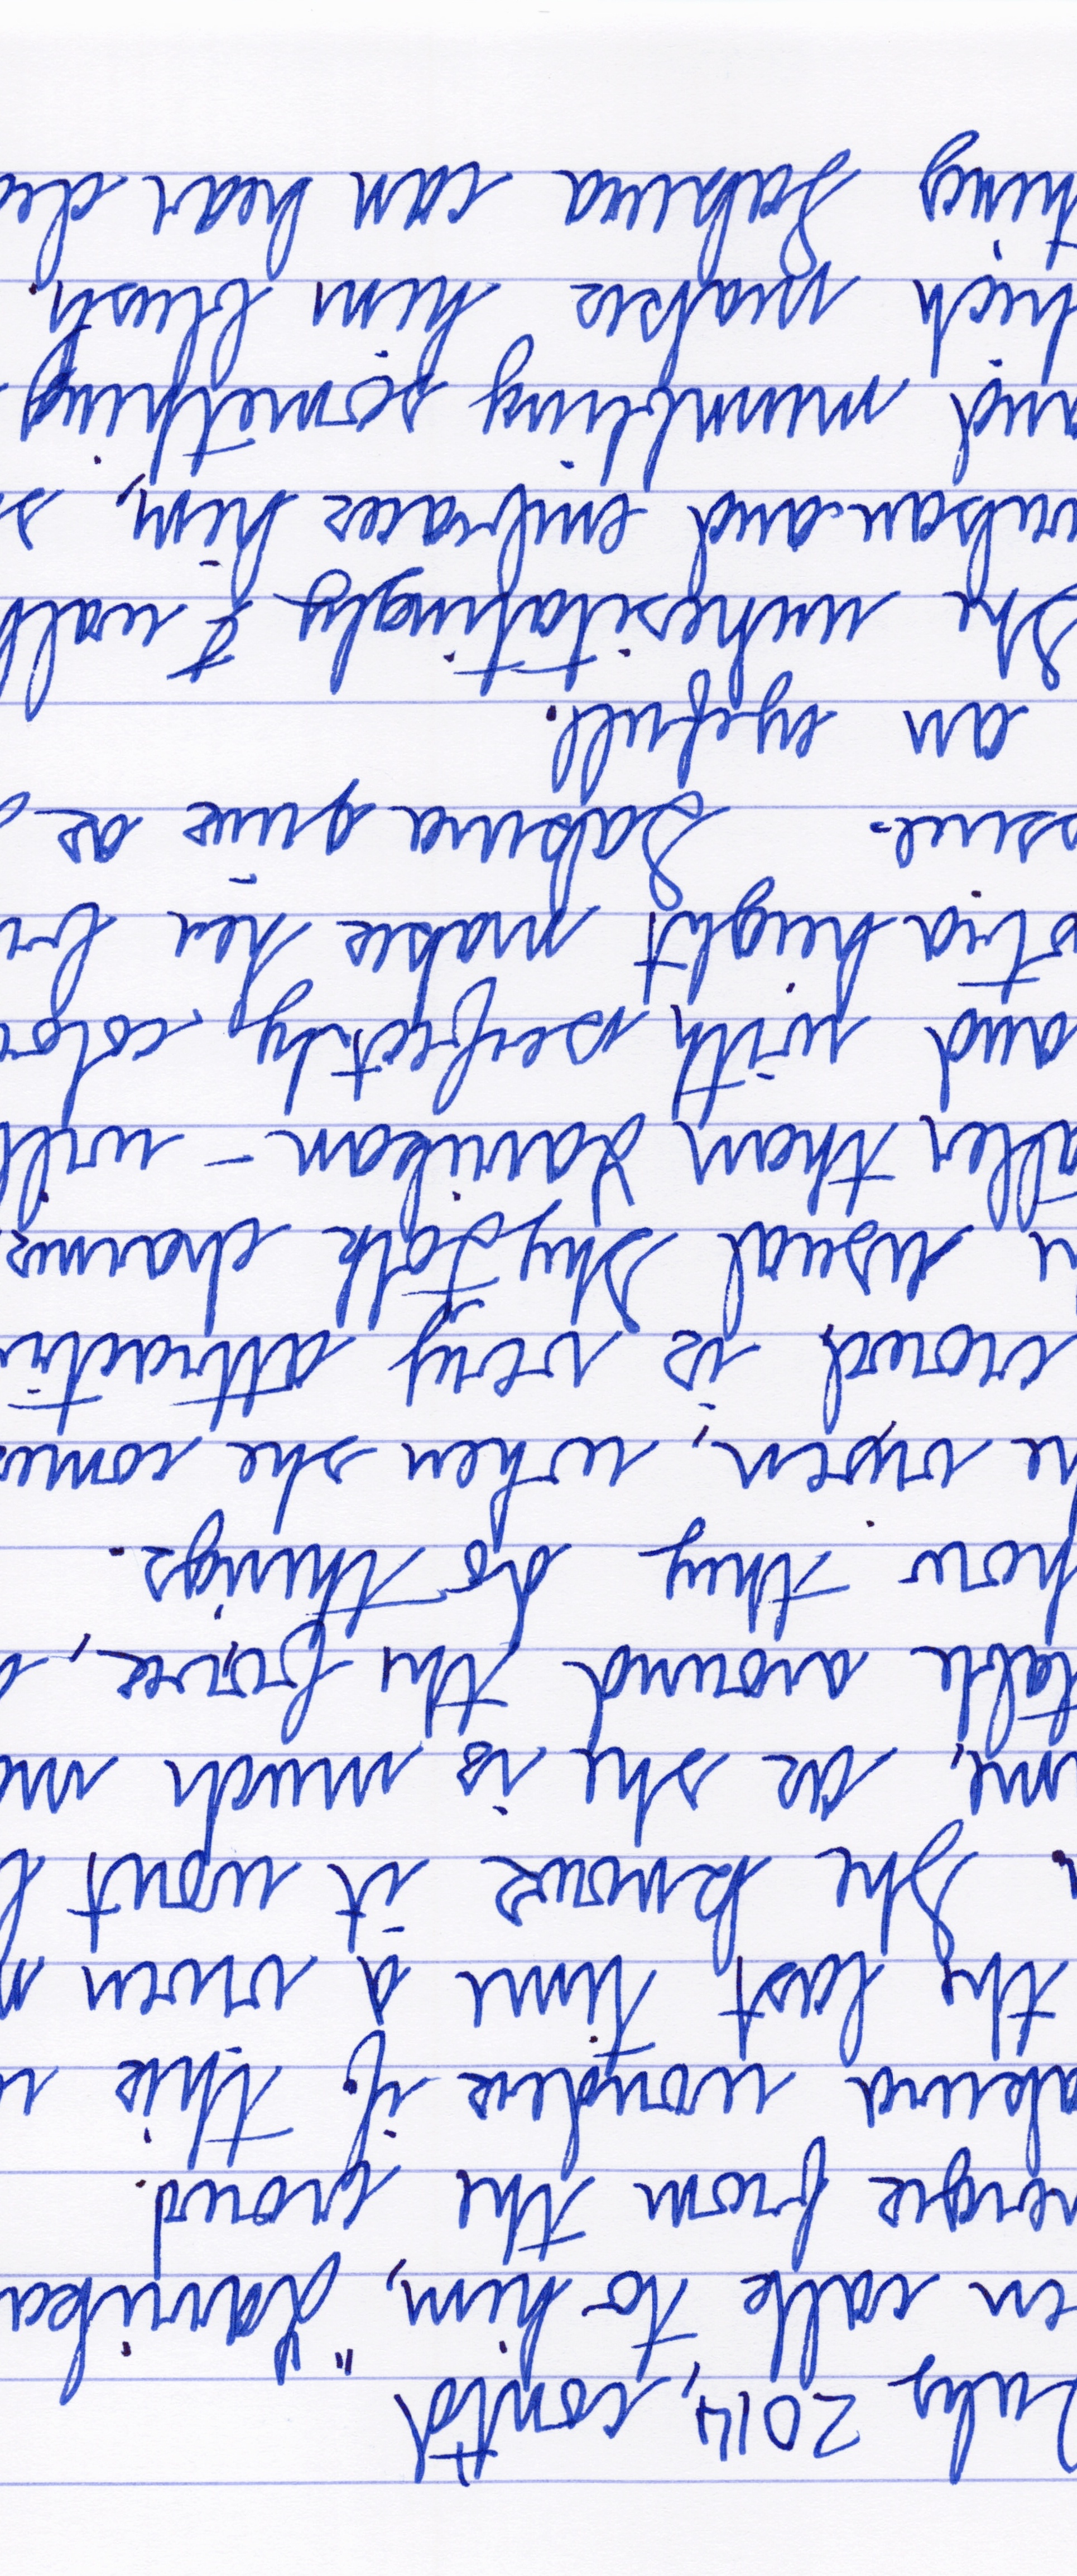 July 2014, cont'd
en calls to him, "Larrika
erge from the crowd.
abina wonders if this w
the last time a vixen m
. She knows it wont b
me, as she is much mo
table around the force, a
how they do things.
he vixen, when she comes
crowd, is very attracti
r usual Shyfolk charms
aller than Larrikan - will
and with perfectly colo
height makes her br
ssue. Sabina give as
an eyeful.
She unhesitatingly & walk
rikan and embraces him, s
and mumbling something
hich makes him blush.
thing Sabina can hear cle